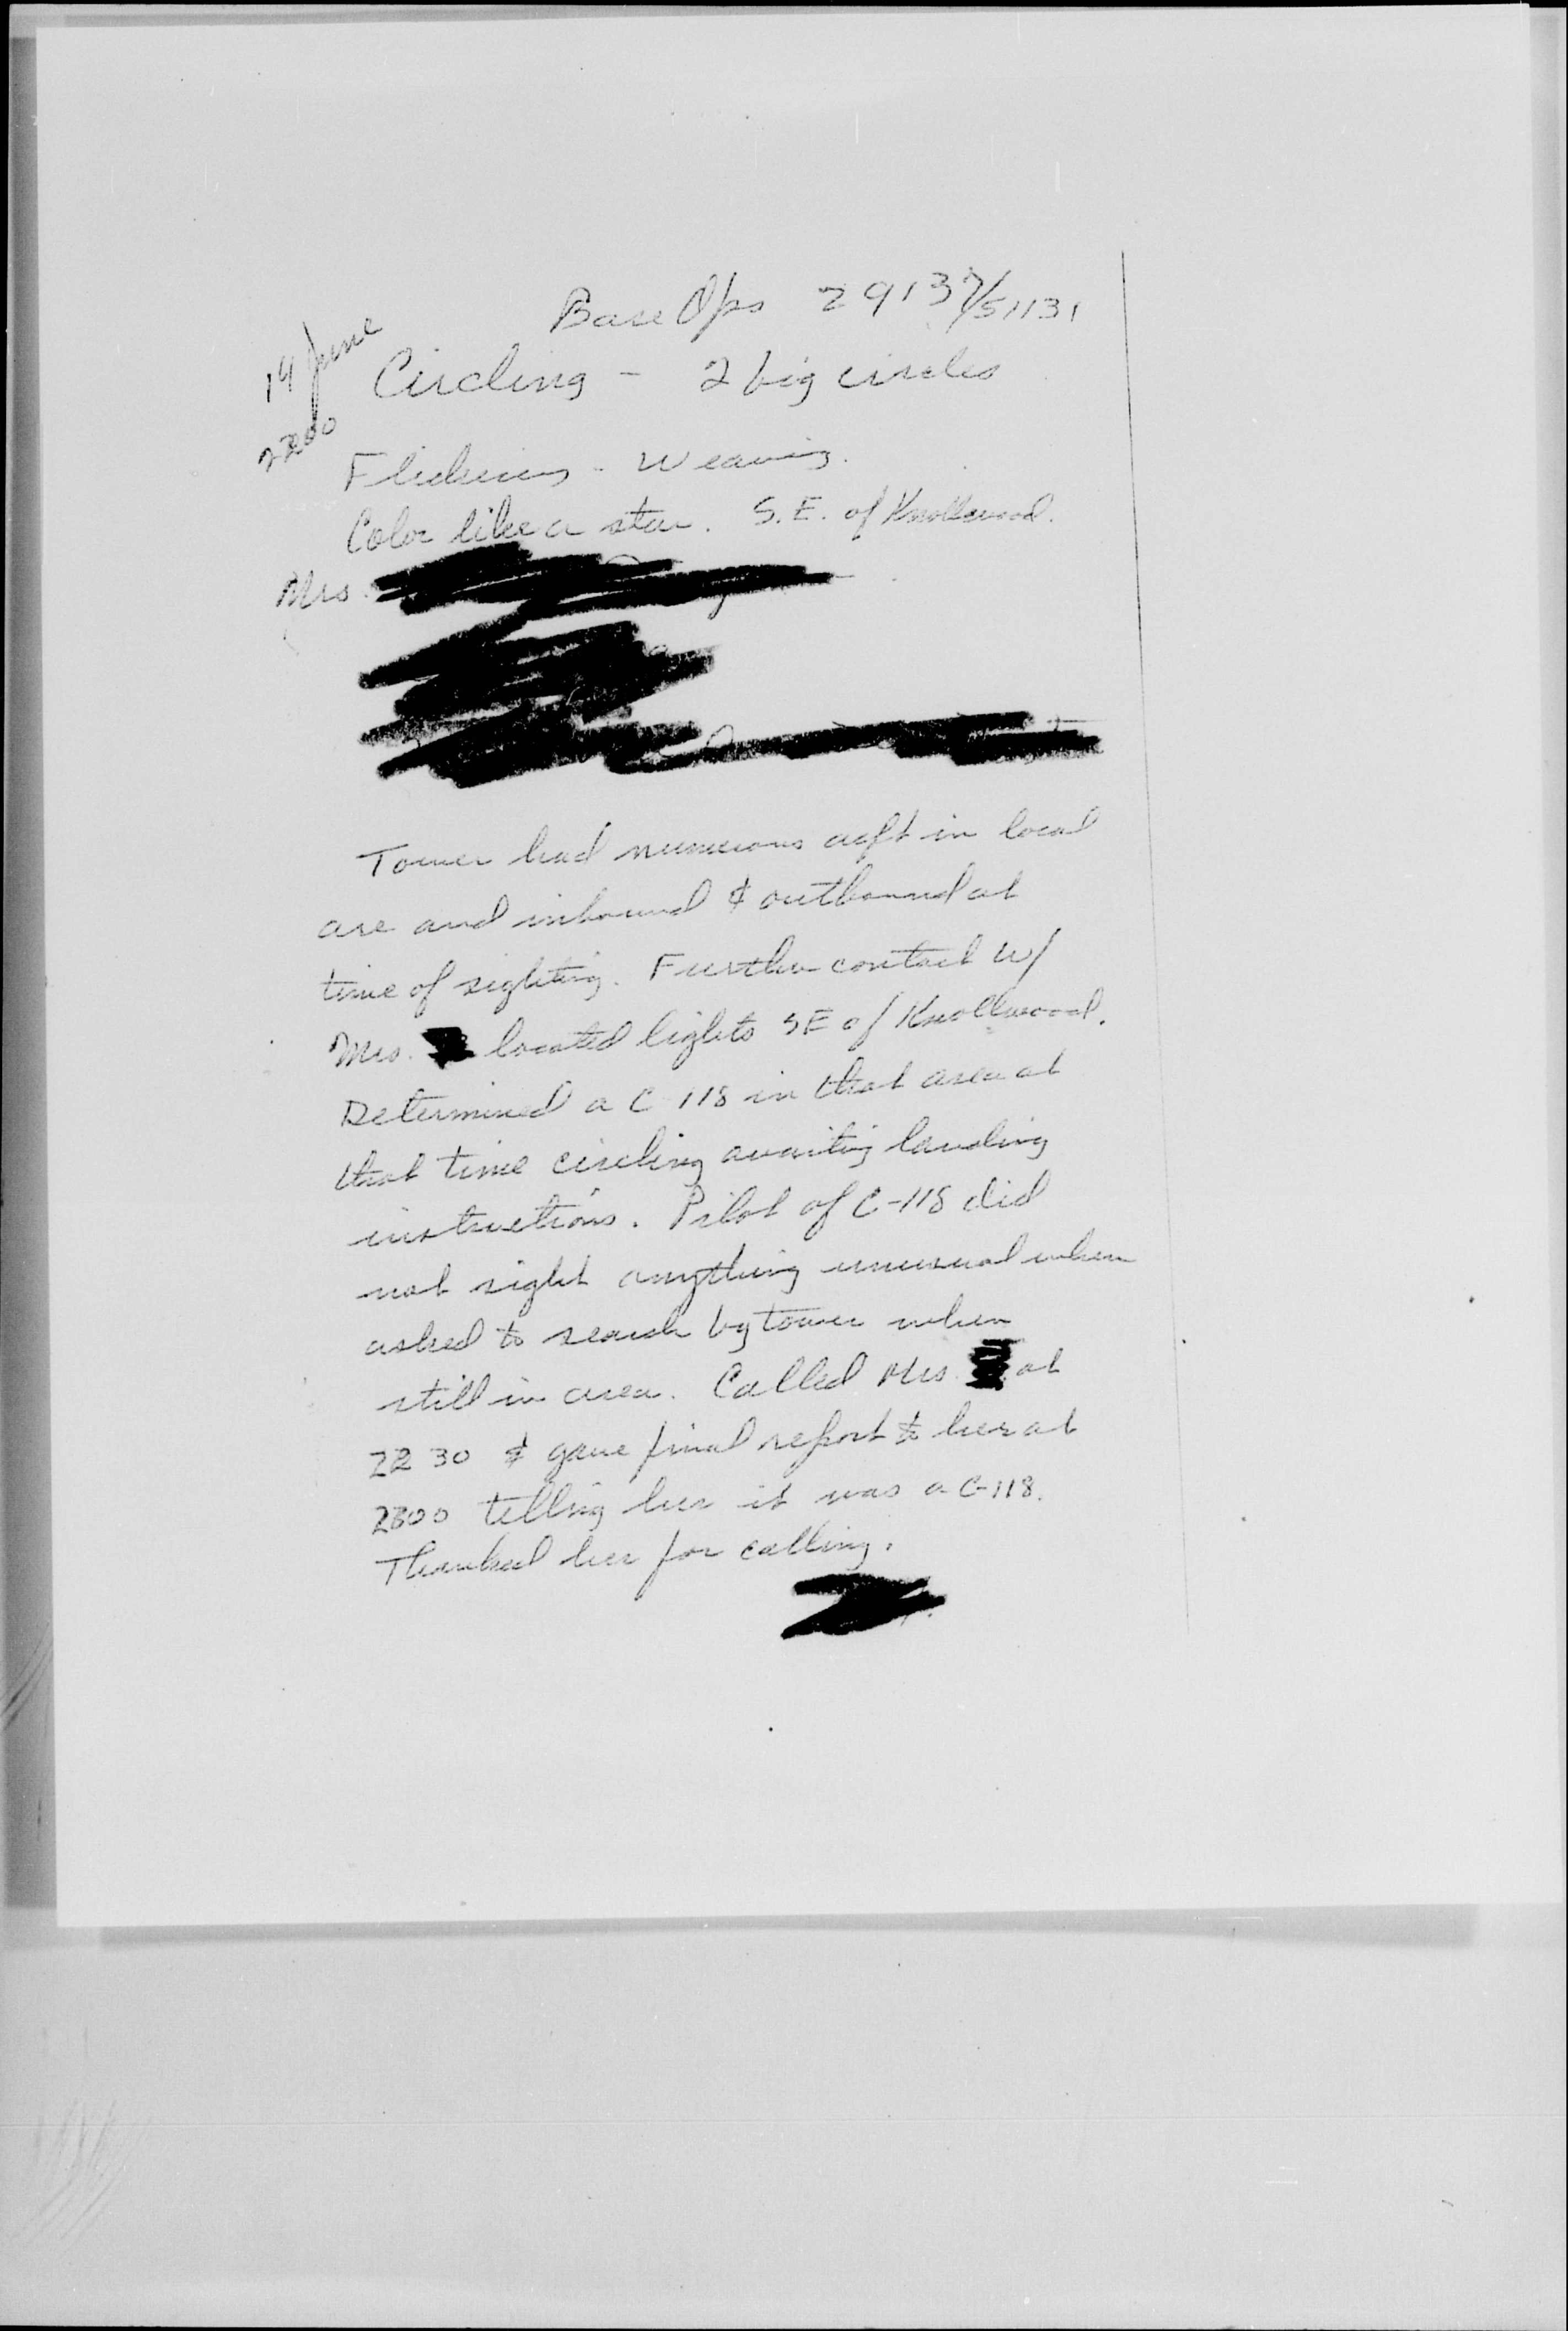 Base Ops 29137/51131
14 June
2200
Circling - 2 big circles
Flickering - Weaving.
Color like a star. S.E. of Knollwood.
Mrs.
Tower had numerous acft in local
are and inbound & outbound at
time of sighting. Further contact w/
Mrs. located lights SE of Knollwood.
Determined a C-118 in that area at
that time circling awaiting landing
instructions. Pilot of C-118 did
not sight anything unusual when
asked to search by tower when
still in area. Called Mrs. at
2230 & gave final report to her at
2300 telling her it was a C-118.
Thanked her for calling.